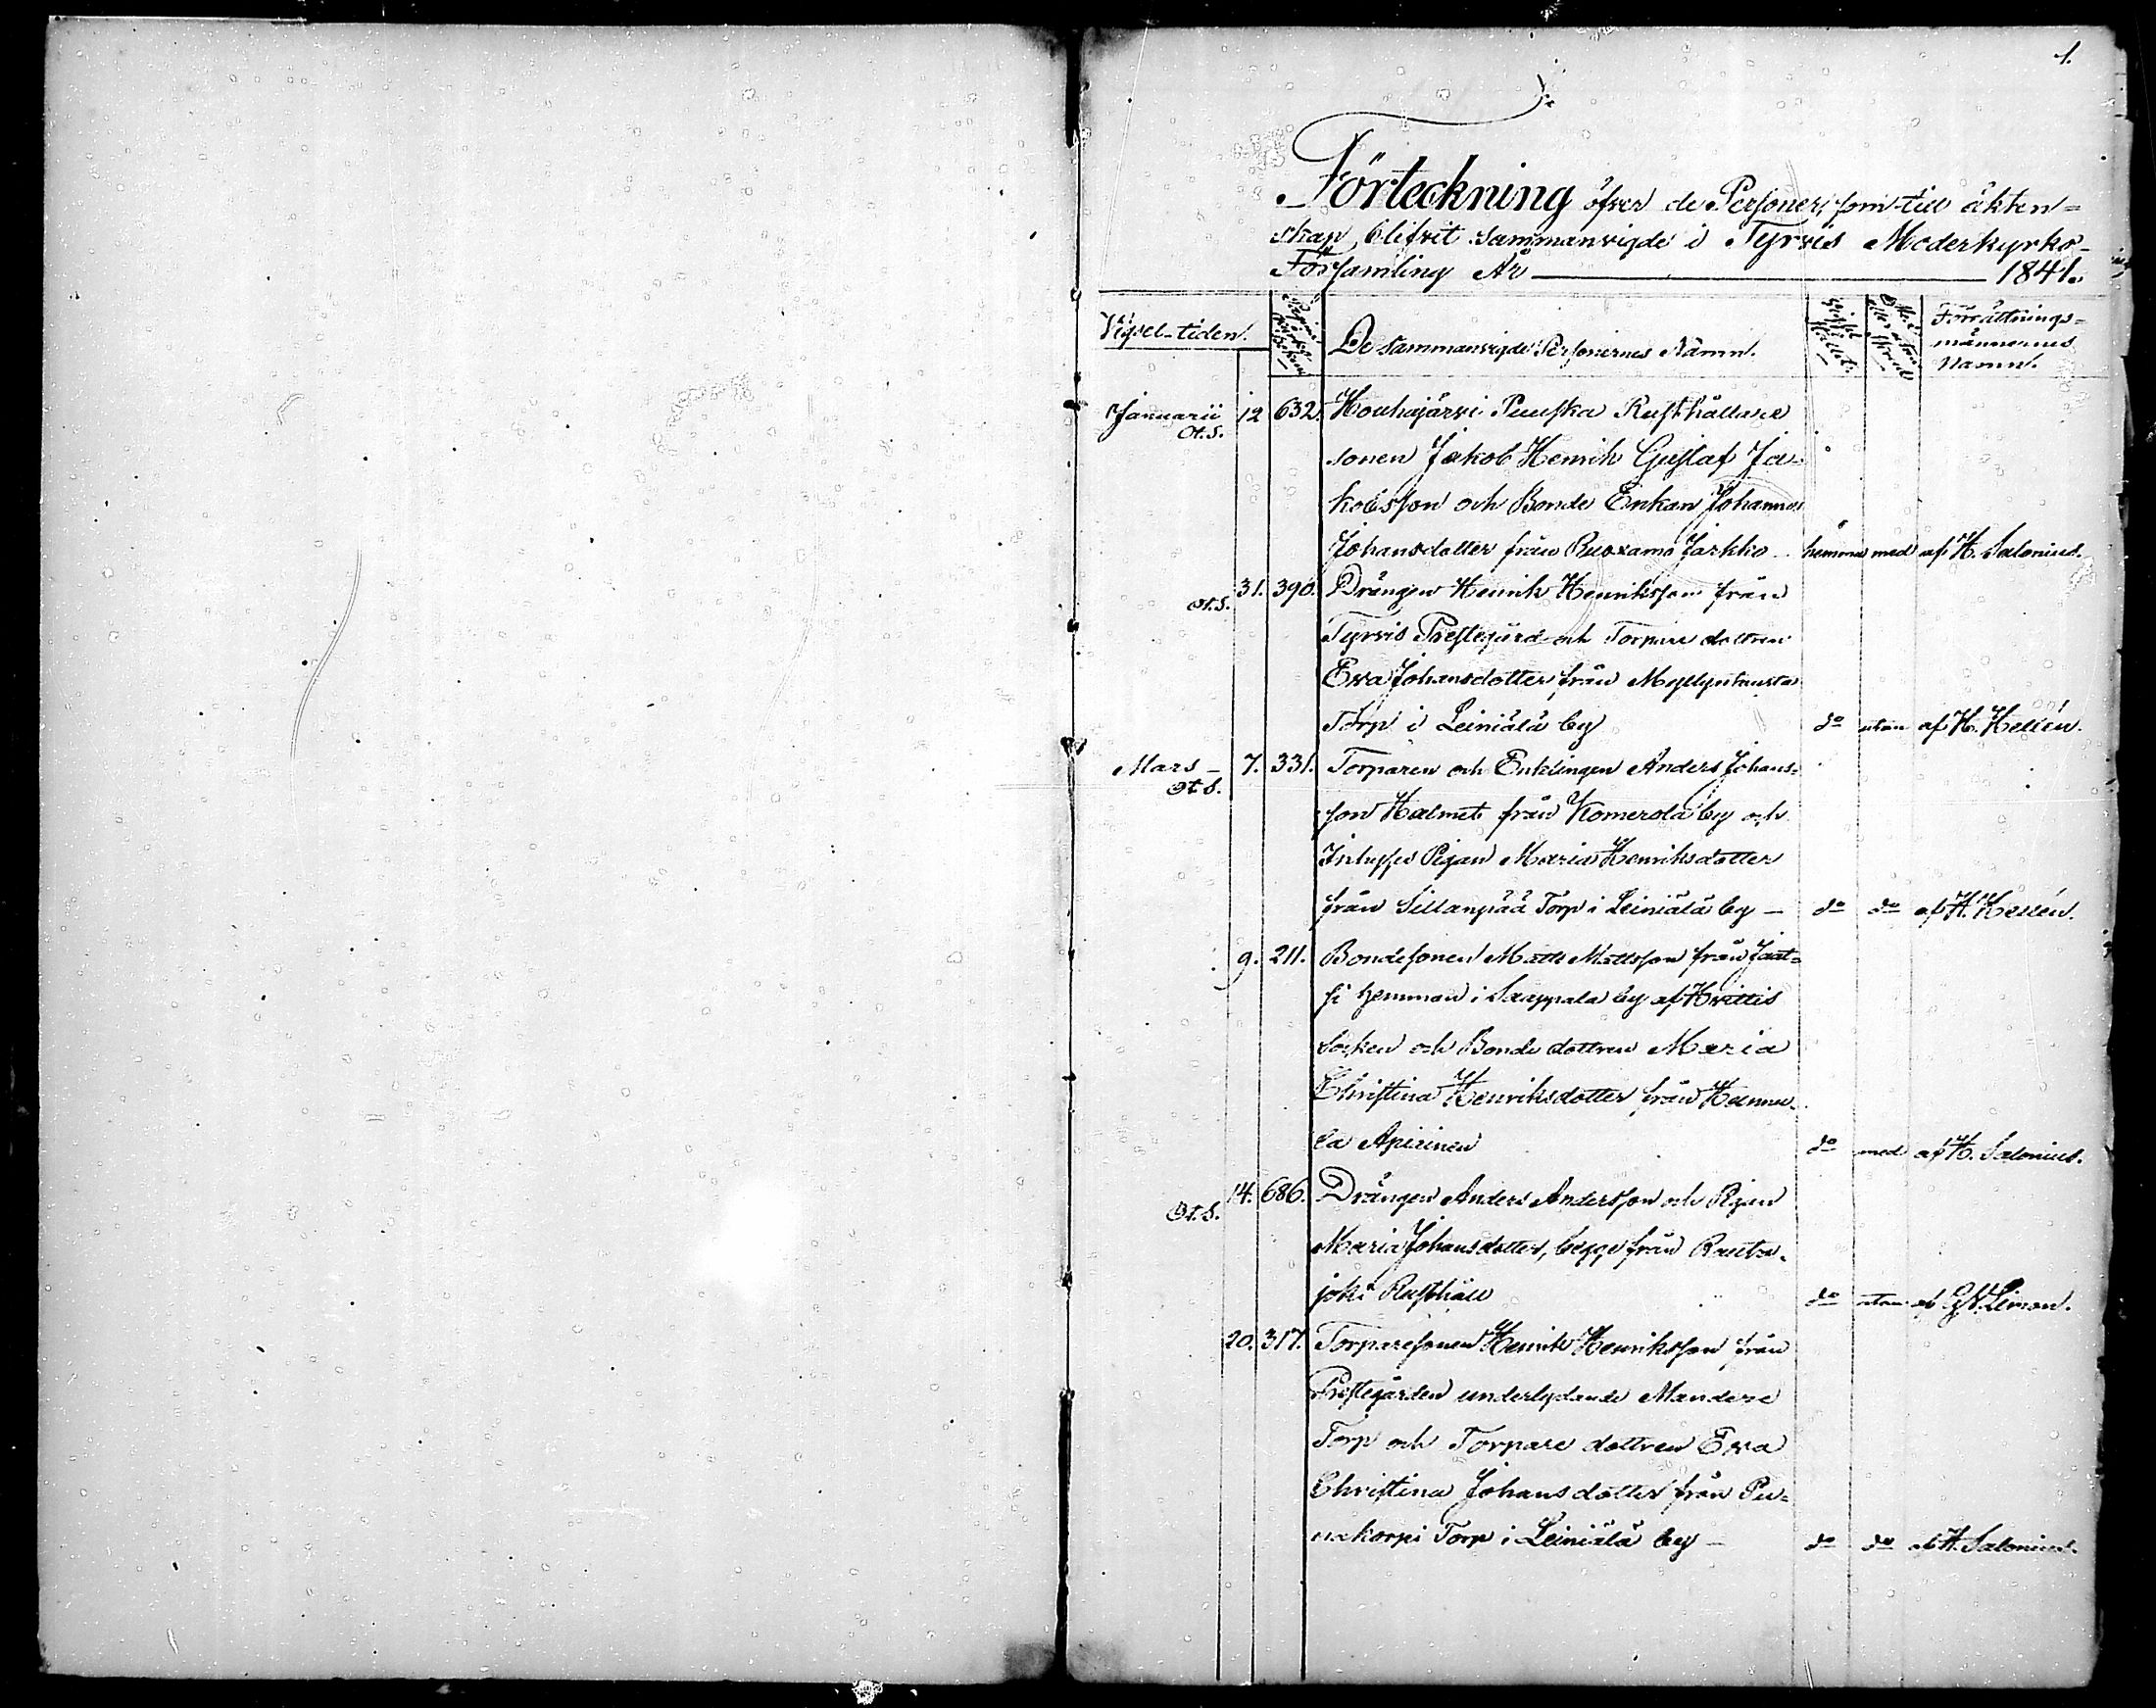 1.
Förteckning öfver de Personer, som till äkten=
skap blifvit sammanvigde i Tyrvis Moderkyrko-
Församling År 1841.
Vigsel-tiden. De sammanvigde Personernes Nämn. Förrättnings=
männernes
Namn.
Januarii 12 632. Houhajärvi Puuska Rusthållare
Ot. S.
sonen Jakob Henrik Gustaf Ja-
kobsson och Bonde Enkan Johanna
Johansdotter från Ruoxamo Jaskko hemma med af H. Salonius.
Ot. S. 31. 390. Drängen Henrik Henriksson från
Tyrvis Prestegård och Torpare dottren
Eva Johansdotter från Myllynhausta
Torp i Leiniälä by do utan af H. Hellén.
Mars – 7. 331. Torparen och Enklingen Anders Johans=
Ot. S.
son Halmet från Komerola by och
Inhyses Pigan Maria Henriksdotter
från Sillanpää Torp i Leiniälä by – do do af H. Hellén.
9. 211. Bondesonen Matts Mattsson från Jaat=
si hemman i Sauppala by af Hvittis
Socken och Bonde dottren Maria
Christina Henriksdotter från Hannu-
la Apirinen do med af H. Salonius.
Ot. S. 14. 686. Drängen Anders Andersson och Pigan
Maria Johansdotter, begge från Rauta-
joki Rusthåll do utan af
20. 317. Torparesonen Henrik Henriksson från
Prestegården underlydande Mandere
Torp och Torpare dottren Eva
Christina Johansdotter från Pu=
nakorpi Torp i Leiniälä by – do do af H. Salonius.